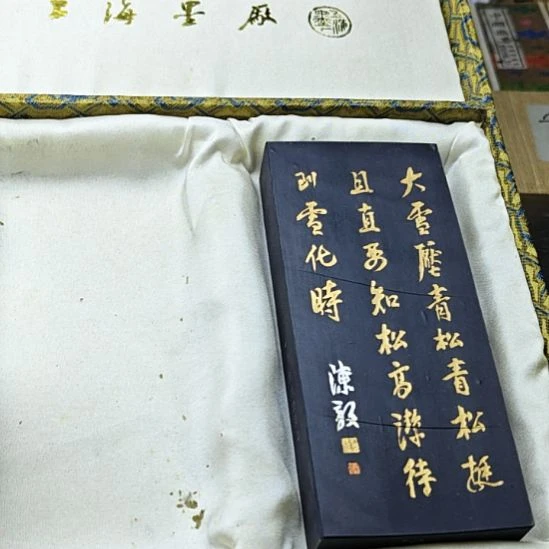 海墨厰
大雪壓青松青松挺
且直要知松高潔待
到雪化時
陳毅